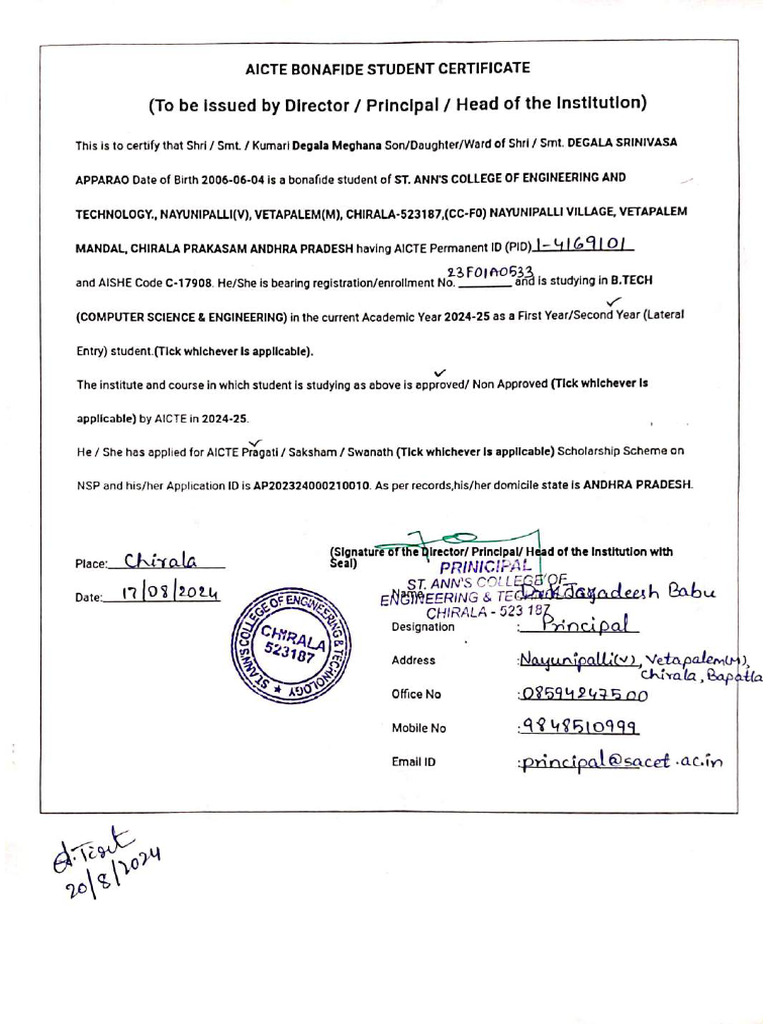 AICTE BONAFIDE STUDENT CERTIFICATE
(To be issued by Director / Principal / Head of the Institution)
This is to certify that Shri / Smt. / Kumari Degala Meghana Son/Daughter/Ward of Shri / Smt. DEGALA SRINIVASA
APPARAO Date of Birth 2006-06-04 is a bonafide student of ST. ANN'S COLLEGE OF ENGINEERING AND
TECHNOLOGY., NAYUNIPALLI(V), VETAPALEM(M), CHIRALA-523187,(CC-F0) NAYUNIPALLI VILLAGE, VETAPALEM
MANDAL, CHIRALA PRAKASAM ANDHRA PRADESH having AICTE Permanent ID (PID) 1-4169101
and AISHE Code C-17908. He/She is bearing registration/enrollment No. 23F01A0533 and is studying in B.TECH
(COMPUTER SCIENCE & ENGINEERING) in the current Academic Year 2024-25 as a First Year/Second Year (Lateral
Entry) student.(Tick whichever is applicable).
The institute and course in which student is studying as above is approved/ Non Approved (Tick whichever is
applicable) by AICTE in 2024-25.
He / She has applied for AICTE Pragati / Saksham / Swanath (Tick whichever is applicable) Scholarship Scheme on
NSP and his/her Application ID is AP202324000210010. As per records,his/her domicile state is ANDHRA PRADESH.
Place: Chirala
Date: 17/08/2024
ST.ANN'S COLLEGE OF ENGINEERING & TECHNOLOGY
CHIRALA
523187
(Signature of the Director/ Principal/ Head of the Institution with
Seal)
PRINICIPAL
ST. ANN'S COLLEGE OF
ENGINEERING & TECHNOLOGY
CHIRALA - 523 187
Name Dr.K.Jagadeesh Babu
Designation : Principal
Address : Nayunipalli(V), Vetapalem(M),
Chirala, Bapatla
Office No : 08594247500
Mobile No : 9848510999
Email ID : principal@sacet.ac.in
20/8/2024